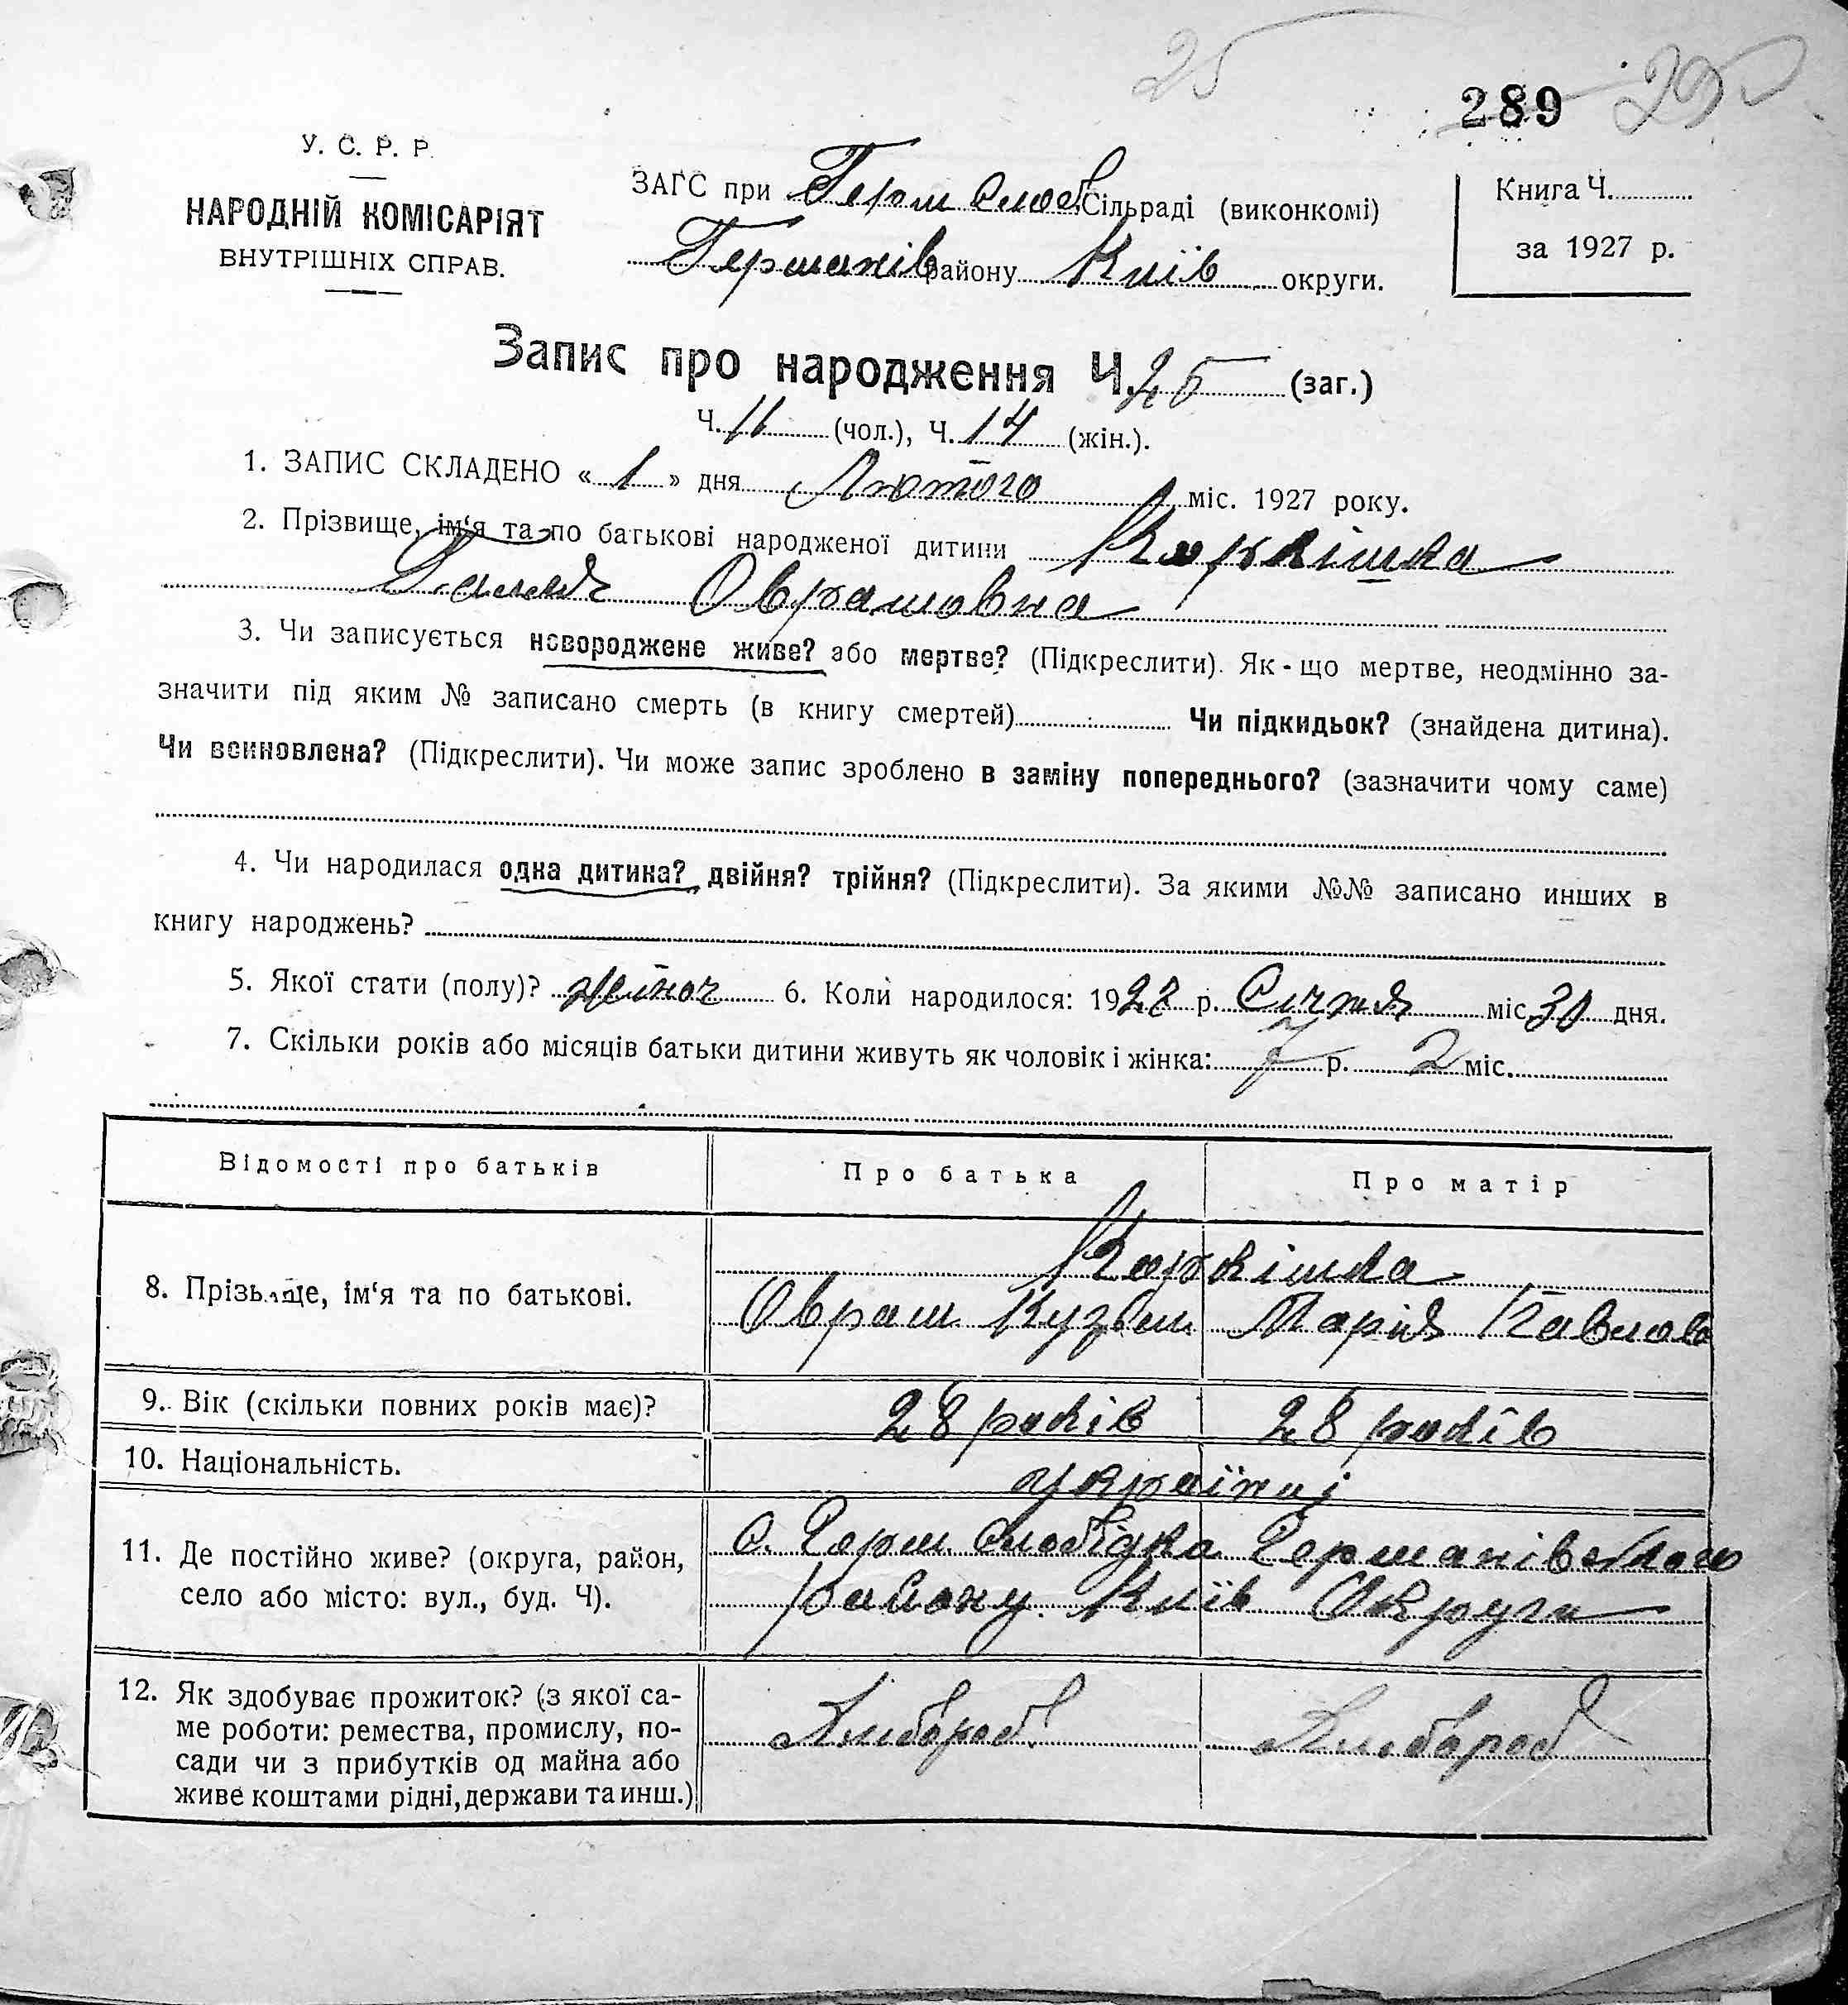 25
289 290
У. С. Р. Р.
НАРОДНІЙ КОМІСАРІЯТ
ВНУТРІШНІХ СПРАВ.
ЗАГС при Герм Слоб. Сільраді (виконкомі)
Германів району Київ округи.
Книга Ч.
за 1927 р.
Запис про народження Ч. 25 (заг.)
Ч. 11 (чол.), Ч. 14 (жін.).
1. ЗАПИС СКЛАДЕНО « 1 » дня Лютого міс. 1927 року.
2. Прізвище, ім‘я та по батькові народженої дитини Коркішка
Галя Оврамовна
3. Чи записується новороджене живе? або мертве? (Підкреслити). Як-що мертве, неодмінно за-
значити під яким № записано смерть (в книгу смертей) Чи підкидьок? (знайдена дитина).
Чи всиновлена? (Підкреслити). Чи може запис зроблено в заміну попереднього? (зазначити чому саме)
4. Чи народилася одна дитина? двійня? трійня? (Підкреслити). За якими №№ записано инших в
книгу народжень?
5. Якої стати (полу)? жіноч 6. Коли народилося: 1927 р. Січня міс 30 дня.
7. Скільки років або місяців батьки дитини живуть як чоловік і жінка: 7 р. 2 міс.
Відомості про батьків Про батька Про матір
Коркішка
8. Прізвище, ім‘я та по батькові.
Оврам Кузьм Марія Павлова
9. Вік (скільки повних років має)? 28 років 28 років
10. Національність. україниі
11. Де постійно живе? (округа, район,
село або місто: вул., буд. Ч).
с. Герм Слобідка Германівського
району Київ Округи
12. Як здобуває прожиток? (з якої са-
ме роботи: ремества, промислу, по-
сади чи з прибутків од майна або
живе коштами рідні, держави та инш.)
Хлібороб. Хлібороб